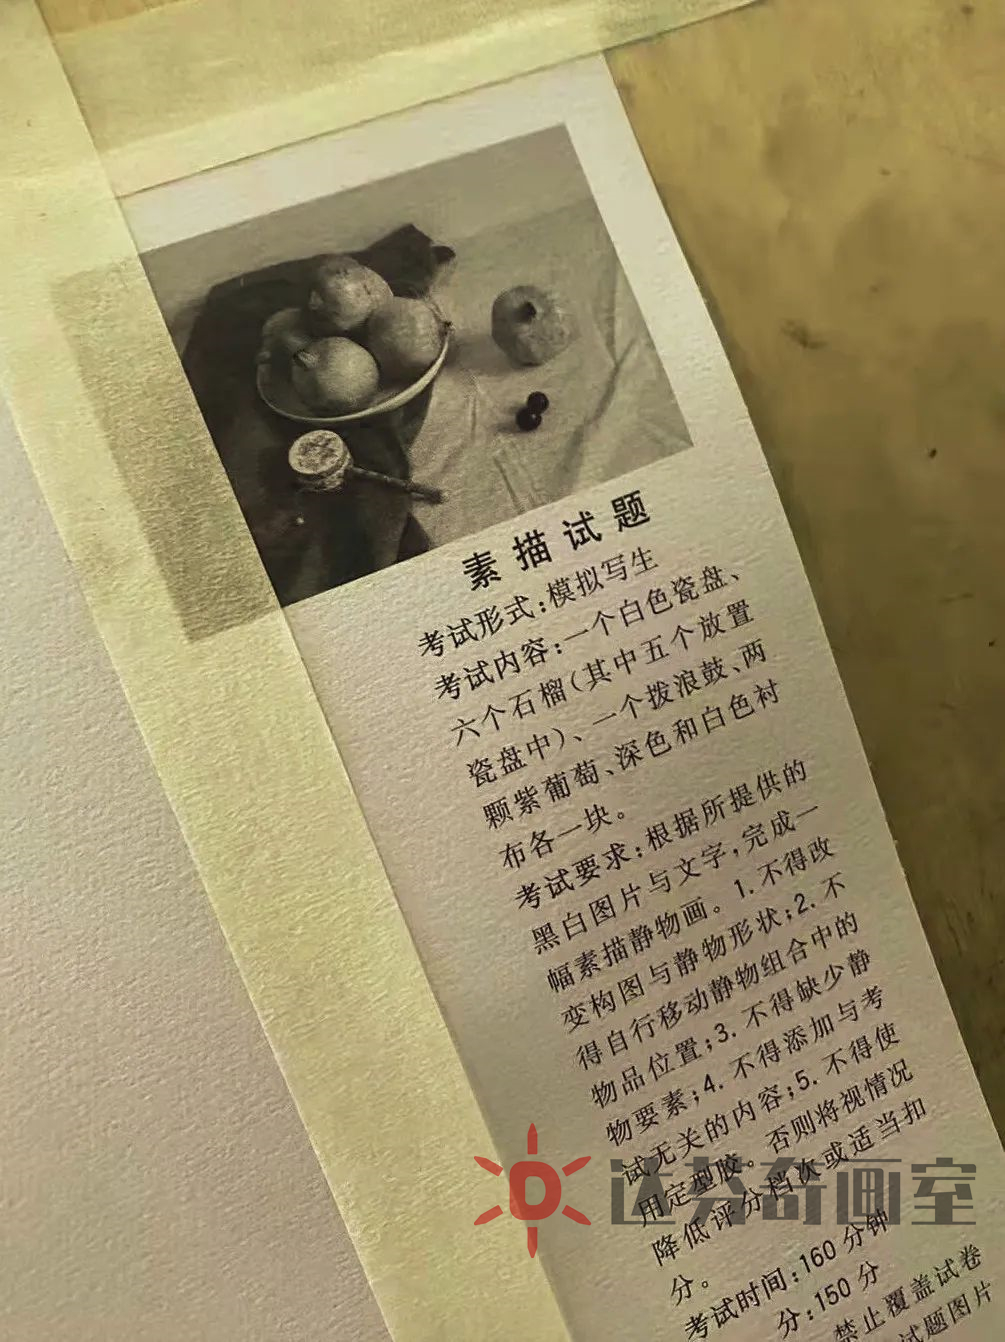 素描试题
考试形式:模拟写生
考试内容:一个白色瓷盘、
六个石榴(其中五个放置
瓷盘中)、一个拨浪鼓、两
颗紫葡萄、深色和白色衬
布各一块。
考试要求:根据所提供的
黑白图片与文字,完成一
幅素描静物画。1.不得改
变构图与静物形状;2.不
得自行移动静物组合中的
物品位置;3.不得缺少静
物要素;4.不得添加与考
试无关的内容;5.不得使
用定型胶。否则将视情况
降低评分档次或适当扣
分。
考试时间:160分钟
分:150分
禁止覆盖试卷
试题图片
D 达芬奇画室